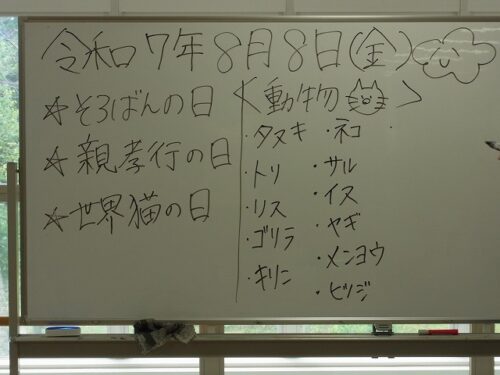 令和7年8月8日(金)
☆そろばんの日
☆親孝行の日
☆世界猫の日
<動物>
・タヌキ
・トリ
・リス
・ゴリラ
・キリン
・ネコ
・サル
・イヌ
・ヤギ
・メンヨウ
・ヒツジ